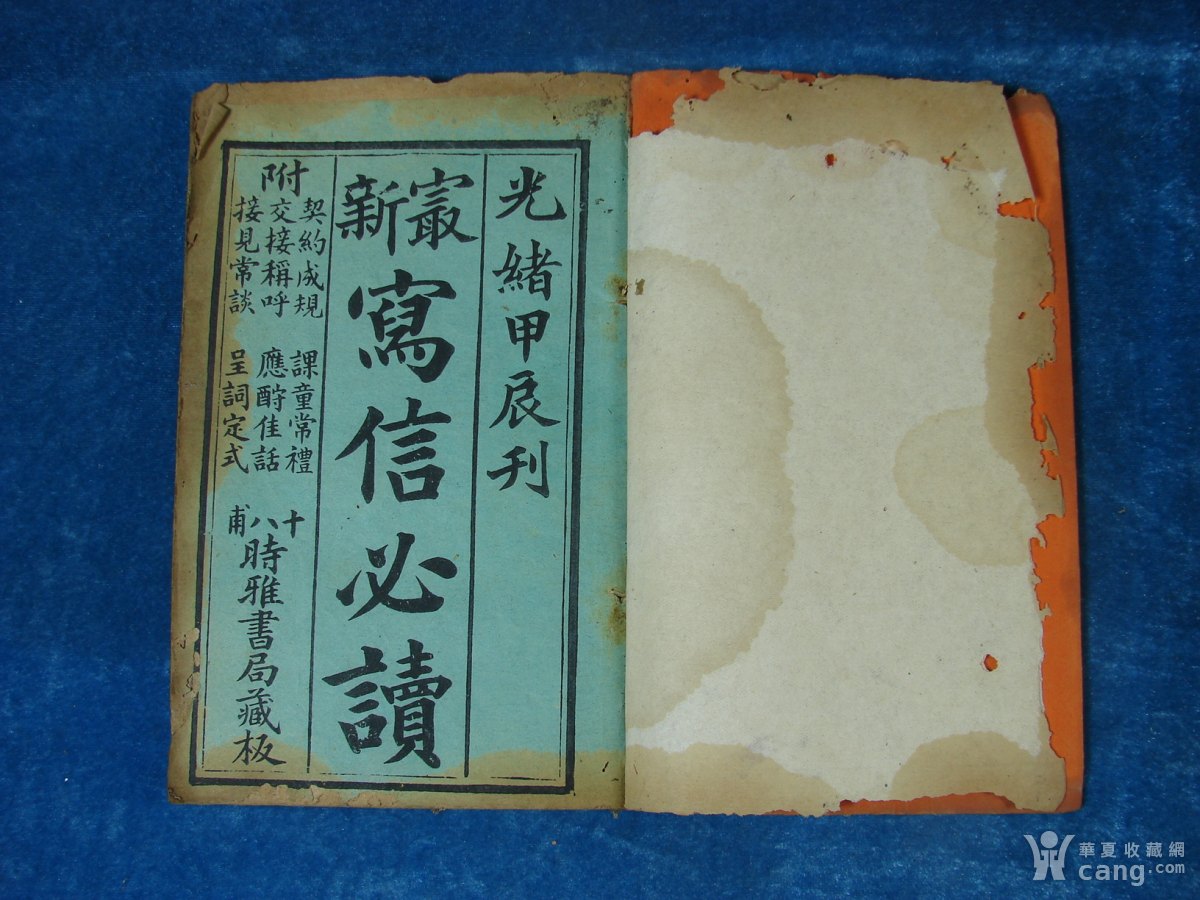 光緒甲辰刊
㝡新
寫信必讀
附
契約成規
交接稱呼
接見常談
課童常禮
應酧佳話
呈詞定式
十八甫
時雅書局藏板
華夏收藏網
cang.com